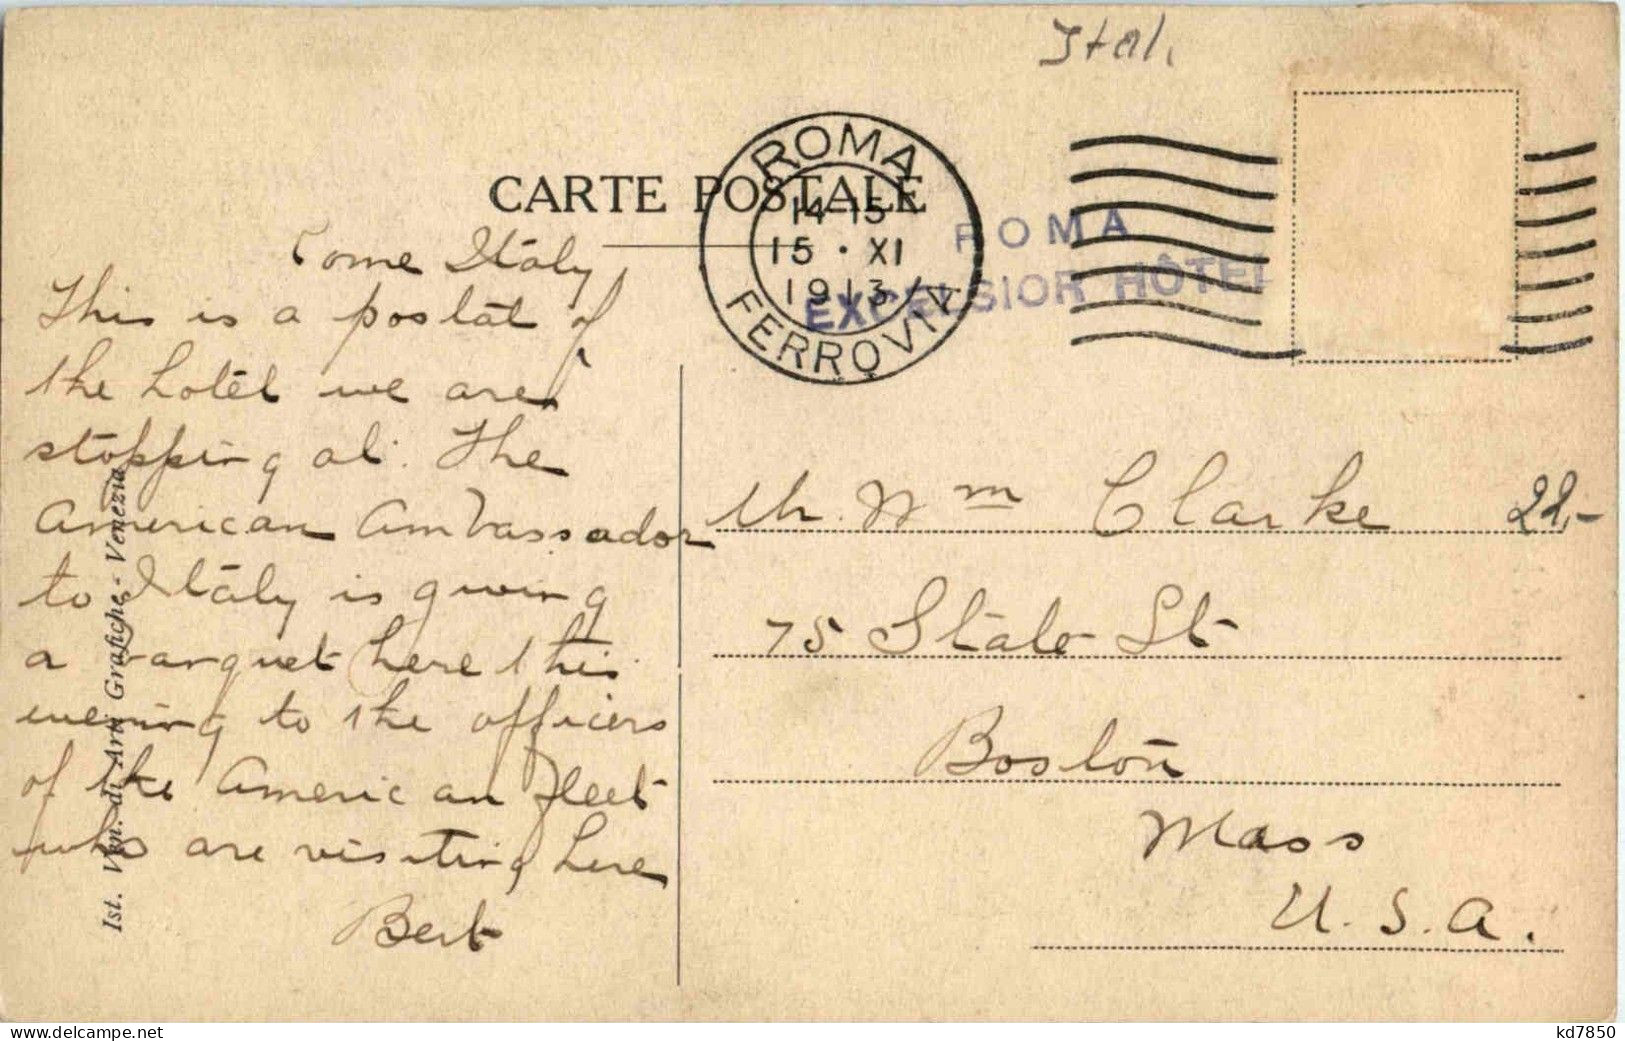 Ital.
CARTE POSTALE
ROMA
14-15
15 · XI
1913
FERROVIA
ROMA
EXCELSIOR HÔTEL
Rome Italy,
This is a postal of
the hotel we are
stopping at. The
American Ambassador
to Italy is giving
a banquet here this
evening to the officers
of the American fleet
who are visiting here
Bert
Ist. Ven. di Arti Grafiche - Venezia
Mr. Wm Clarke
22,-
75 State St
Boston
Mass
U.S.A.
kd7850